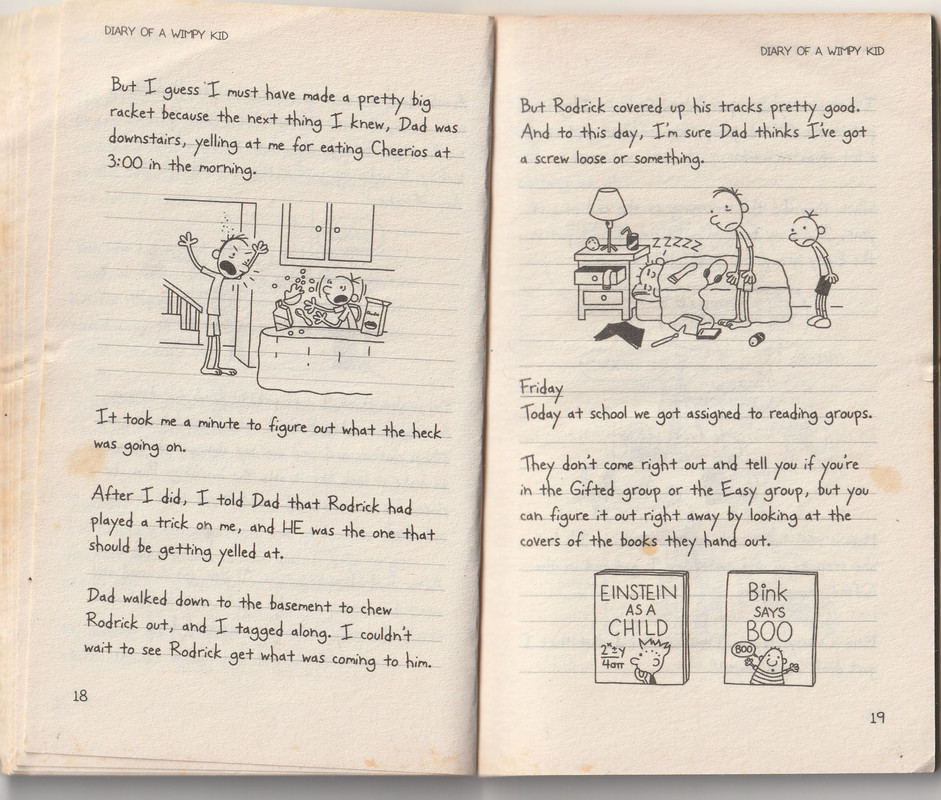 DIARY OF A WIMPY KID
But I guess I must have made a pretty big
racket because the next thing I knew, Dad was
downstairs, yelling at me for eating Cheerios at
3:00 in the morning.
It took me a minute to figure out what the heck
was going on.
After I did, I told Dad that Rodrick had
played a trick on me, and HE was the one that
should be getting yelled at.
Dad walked down to the basement to chew
Rodrick out, and I tagged along. I couldn't
wait to see Rodrick get what was coming to him.
18
DIARY OF A WIMPY KID
But Rodrick covered up his tracks pretty good.
And to this day, I'm sure Dad thinks I've got
a screw loose or something.
ZZZZZ
Friday
Today at school we got assigned to reading groups.
They don't come right out and tell you if you're
in the Gifted group or the Easy group, but you
can figure it out right away by looking at the
covers of the books they hand out.
EINSTEIN
AS A
CHILD
Bink
SAYS
BOO
BOO
19